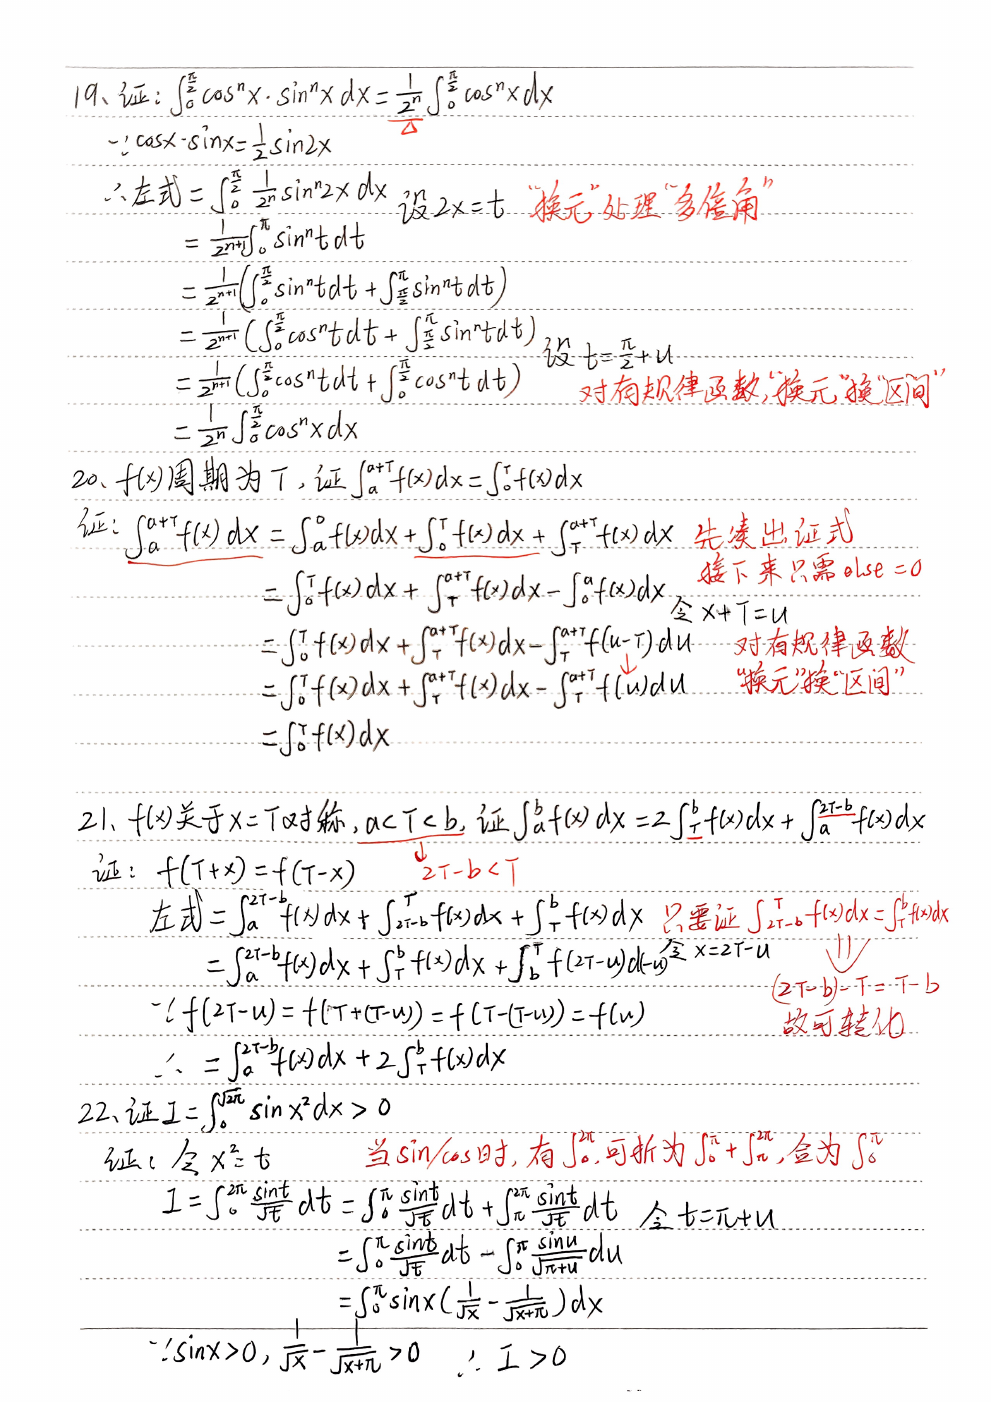 19、证: ∫₀^{π/2} cosⁿx·sinⁿx dx = 1/2ⁿ ∫₀^{π/2} cosⁿx dx
∵ cosx·sinx = 1/2 sin2x
∴ 左式 = ∫₀^{π/2} 1/2ⁿ sinⁿ2x dx 设2x=t "换元"处理"多倍角"
= 1/2ⁿ⁺¹ ∫₀^π sinⁿt dt
= 1/2ⁿ⁺¹ (∫₀^{π/2} sinⁿt dt + ∫_{π/2}^π sinⁿt dt)
= 1/2ⁿ⁺¹ (∫₀^{π/2} cosⁿt dt + ∫_{π/2}^π sinⁿt dt) 设 t = π/2 + u
= 1/2ⁿ⁺¹ (∫₀^{π/2} cosⁿt dt + ∫₀^{π/2} cosⁿt dt) 对有规律函数,"换元"换"区间"
= 1/2ⁿ ∫₀^{π/2} cosⁿx dx
20、f(x)周期为T, 证 ∫_a^{a+T} f(x)dx = ∫₀^T f(x)dx
证: ∫_a^{a+T} f(x)dx = ∫_a^0 f(x)dx + ∫₀^T f(x)dx + ∫_T^{a+T} f(x)dx 先凑出证式
接下来只需else=0
= ∫₀^T f(x)dx + ∫_T^{a+T} f(x)dx - ∫₀^a f(x)dx 令x+T=u
= ∫₀^T f(x)dx + ∫_T^{a+T} f(x)dx - ∫_T^{a+T} f(u-T)du 对有规律函数
= ∫₀^T f(x)dx + ∫_T^{a+T} f(x)dx - ∫_T^{a+T} f(u)du "换元"换"区间"
= ∫₀^T f(x)dx
21、f(x)关于x=T对称, a<T<b, 证 ∫_a^b f(x)dx = 2∫_T^b f(x)dx + ∫_a^{2T-b} f(x)dx
证: f(T+x) = f(T-x) 2T-b<T
左式 = ∫_a^{2T-b} f(x)dx + ∫_{2T-b}^T f(x)dx + ∫_T^b f(x)dx 只要证 ∫_{2T-b}^T f(x)dx = ∫_T^b f(x)dx
= ∫_a^{2T-b} f(x)dx + ∫_T^b f(x)dx + ∫_b^T f(2T-u)d(-u) 令x=2T-u
(2T-b)-T = T-b
∵ f(2T-u) = f(T+(T-u)) = f(T-(T-u)) = f(u) 故可转化
∴ = ∫_a^{2T-b} f(x)dx + 2∫_T^b f(x)dx
22、证 I = ∫₀^{√2π} sin x² dx > 0
证: 令x²=t 当sin/cos时, 有∫₀^{2π},可折为∫₀^π + ∫_π^{2π}, 合为∫₀^π
I = ∫₀^{2π} sint/√t dt = ∫₀^π sint/√t dt + ∫_π^{2π} sint/√t dt 令 t=π+u
= ∫₀^π sint/√t dt - ∫₀^π sinu/√(π+u) du
= ∫₀^π sinx (1/√x - 1/√(x+π)) dx
∵ sinx>0, 1/√x - 1/√(x+π) > 0 ∴ I>0